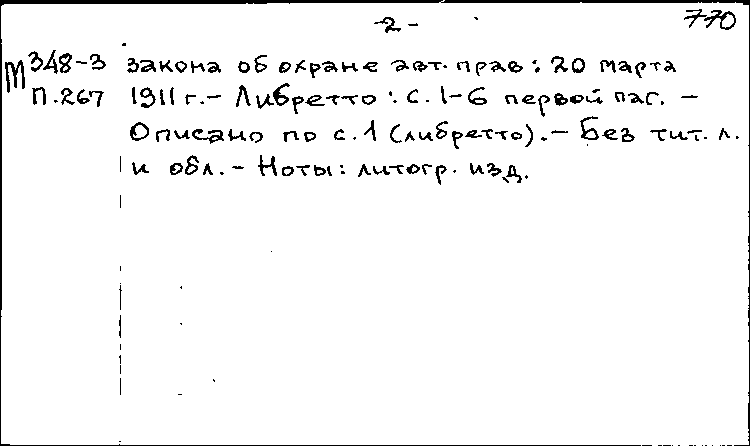 -2- 770
М 348-3 закона об охране авт. прав: 20 марта
П.267 1911 г.- Либретто: с.1-6 первой паг. -
Описано по с.1 (либретто).- Без тит. л.
и обл. - Ноты: литогр. изд.